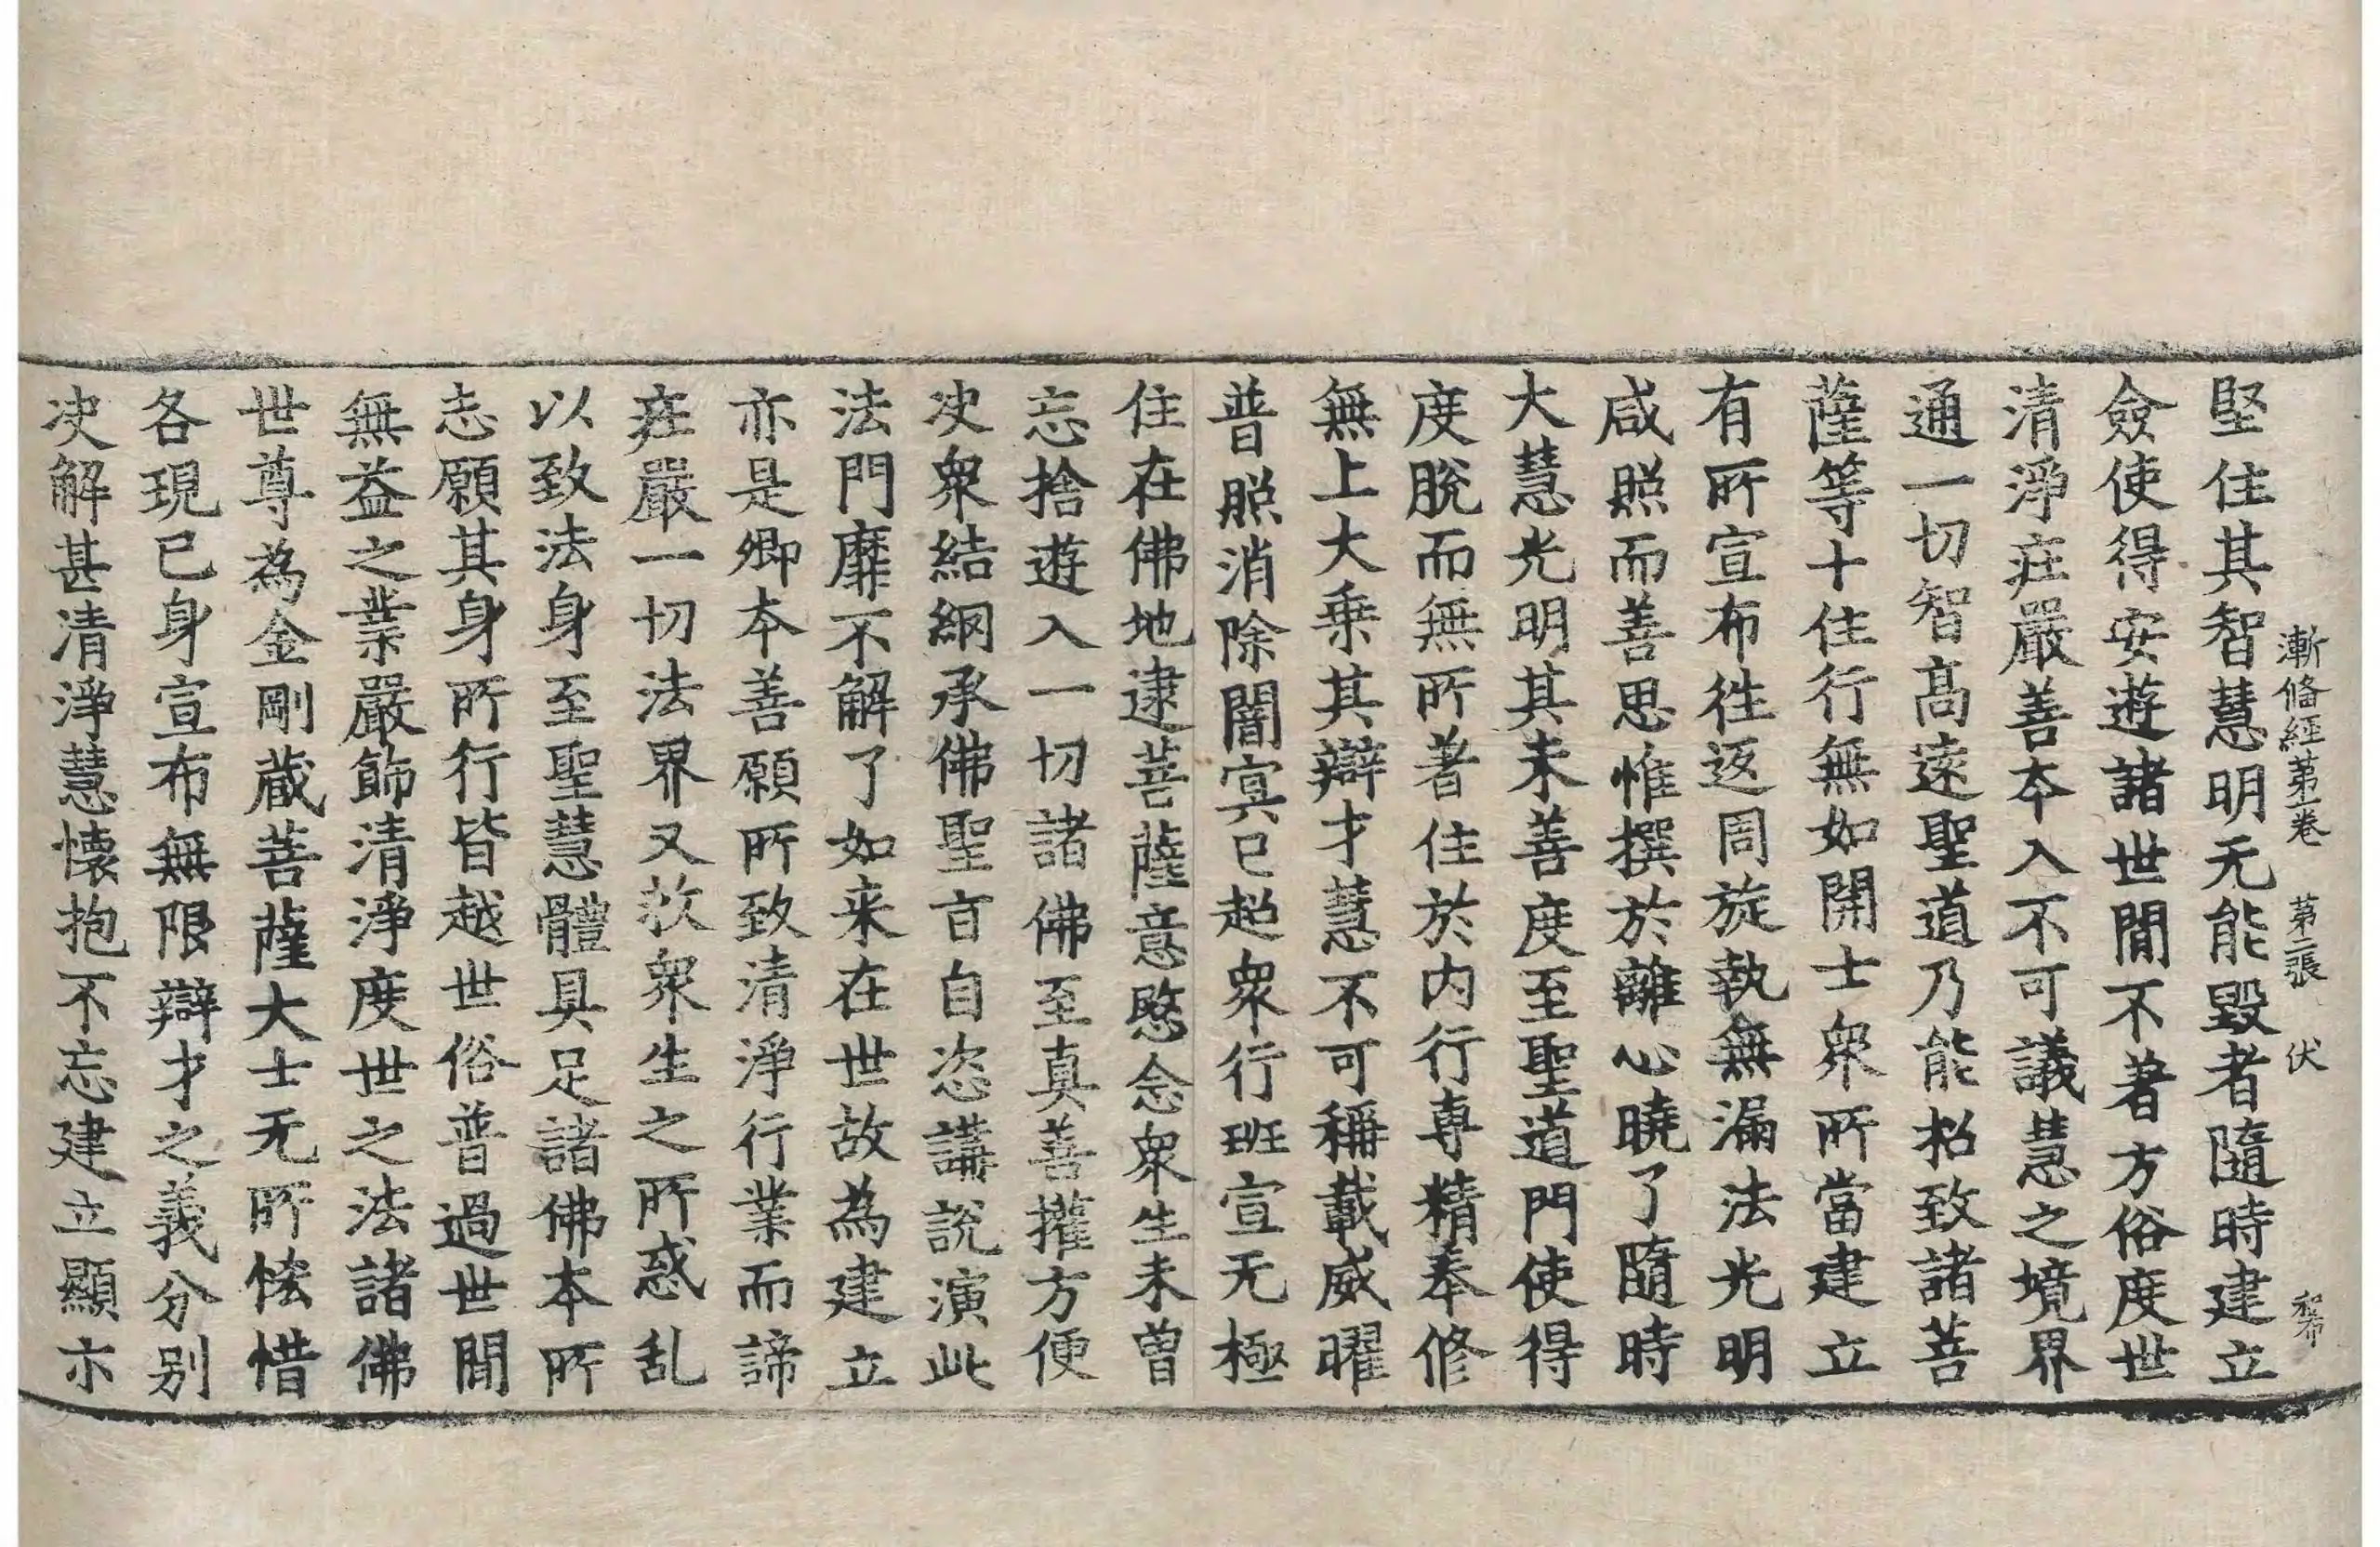 漸偹經第一卷　第二張　伏
堅住其智慧明无能毀者隨時建立
僉使得安遊諸世閒不著方俗度世
清淨庄嚴善本入不可議慧之境界
通一切智髙遠聖道乃能招致諸菩
薩等十住行無如開士衆所當建立
有所宣布往返周旋執無漏法光明
咸照而善思惟撰於離心曉了隨時
大慧光明其未善度至聖道門使得
度脫而無所著住於内行専精奉修
無上大乗其辯才慧不可稱載威曜
普照消除闇冥已超衆行班宣无極
住在佛地逮菩薩意愍念衆生未曽
忘捨遊入一切諸佛至真善權方便
决衆結網承佛聖旨自恣講說演此
法門靡不解了如来在世故為建立
亦是卿本善願所致清淨行業而諦
庄嚴一切法界又救衆生之所惑乱
以致法身至聖慧體具足諸佛本所
志願其身所行皆越世俗普過世閒
無益之業嚴飾清淨度世之法諸佛
世尊為金剛蔵菩薩大士无所悋惜
各現已身宣布無限辯才之義分别
决解甚清淨慧懐抱不忘建立顯示